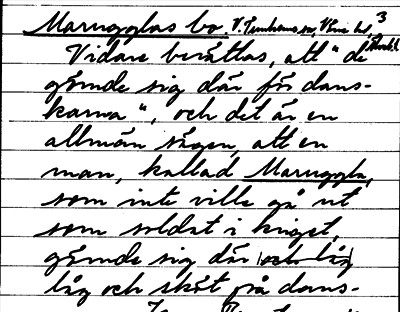 Marugglas bo. V. Tunhems sn, Väne hd, 3
Vidare berättas, att "de
gömde sig där för dans-
karna", och det är en
allmän sägen, att en
man, kallad Maruggla,
som inte ville gå ut
som soldat i kriget,
gömde sig där och låg
låg och sköt på dans-